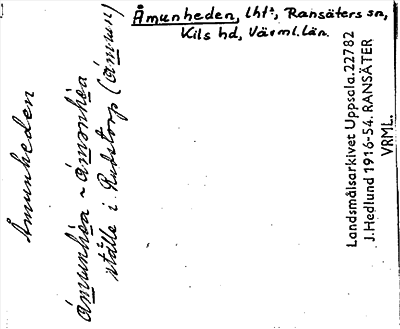 Åmunheden, lht², Ransäters sn,
Kils hd, Värml. län.
Åmunheden
ámunhèa ~ ámonhèa
ställe i Rudstorp (ámun)
Landsmålsarkivet Uppsala. 22782
J. Hedlund 1916-54. RANSÄTER
VRML.